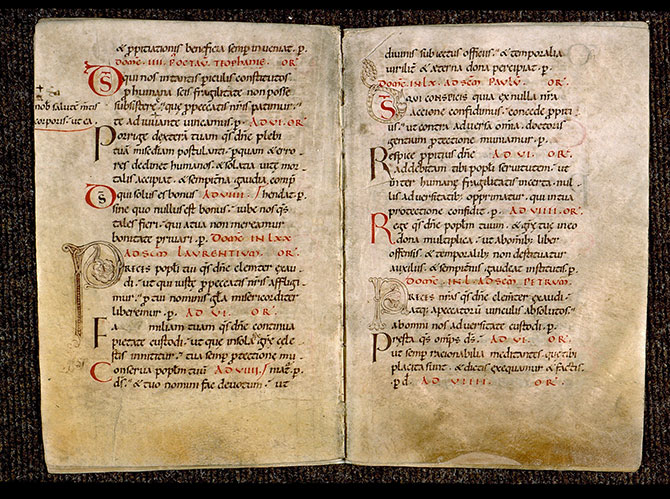 & ppitiationis beneficia semp inveniat. p.
DOMC. IIII. P OCTAV. TEOPHANIE. OR.
DS qui nos in tantis piculis constitutos
p humana scis fragilitate non posse
subsistere. que p peccatis nris patimur
nob salute mtis
corporis. ut ea.
te adiuvante vincamus. p. AD VI. OR.
Porrige dexteram tuam qs dne plebi
tuam misediam postulanti. p quam & erro
res declinet humanos. & solatia vite mor
talis accipiat. & sempitna gaudia comp
DS qui solus es bonus AD VIIII. / hendat. p.
sine quo nullus est bonus. iube nos qs
tales fieri. qui a tua non mereamur
bonitate privari. p. DOMC IN LXX
AD SCM LAURENTIUM. OR.
Preces popli tui qs dne clemter exau
di. ut qui iuste p peccatis nris affligi
mur. p tui nominis gla misericorditer
liberemur. p. AD VI. OR.
Familiam tuam qs dne continua
pietate custodi. ut que in sola spe gre cele
stis innititur. tua semp ptectione mu
Conserva poplm tuu AD VIIII. / niat. p.
ds. & tuo nomini fac devotum. ut
divinis subiectus officiis. & temporalia
viriliter & aeterna dona percipiat. p.
DOMC IN LX. AD SCM PAULU. OR.
DS qui conspicis quia ex nulla nra
accione confidimus. concede ppiti
us. ut contra adversa omia. doctoris
gentium ptectione muniamur. p.
Respice ppitius dne AD VI. OR.
ad debitam tibi popli servitutem. ut
inter humane fragilitatis incerta. nul
lis adversitatib; opprimatur. qui in tua
protectione confidit. p. AD VIIII. OR.
Rege qs dne poplm tuum. & gre tue in eo
dona multiplica. ut ab omib; liber
offensis. & temporalib; non destituatur
auxiliis. & sempitnis gaudeat institutis. p.
DOMC. IN L. AD SCM PETRUM.
Preces nras qs dne clemter exaudi.
atq; a peccatoru vinculis absolutos.
ab omni nos adversitate custodi. p.
Presta qs omps ds. AD VI. OR.
ut semp racionabilia meditantes. que tibi
placita sunt. & dictis exequamur & factis.
p d. AD VIIII. OR.